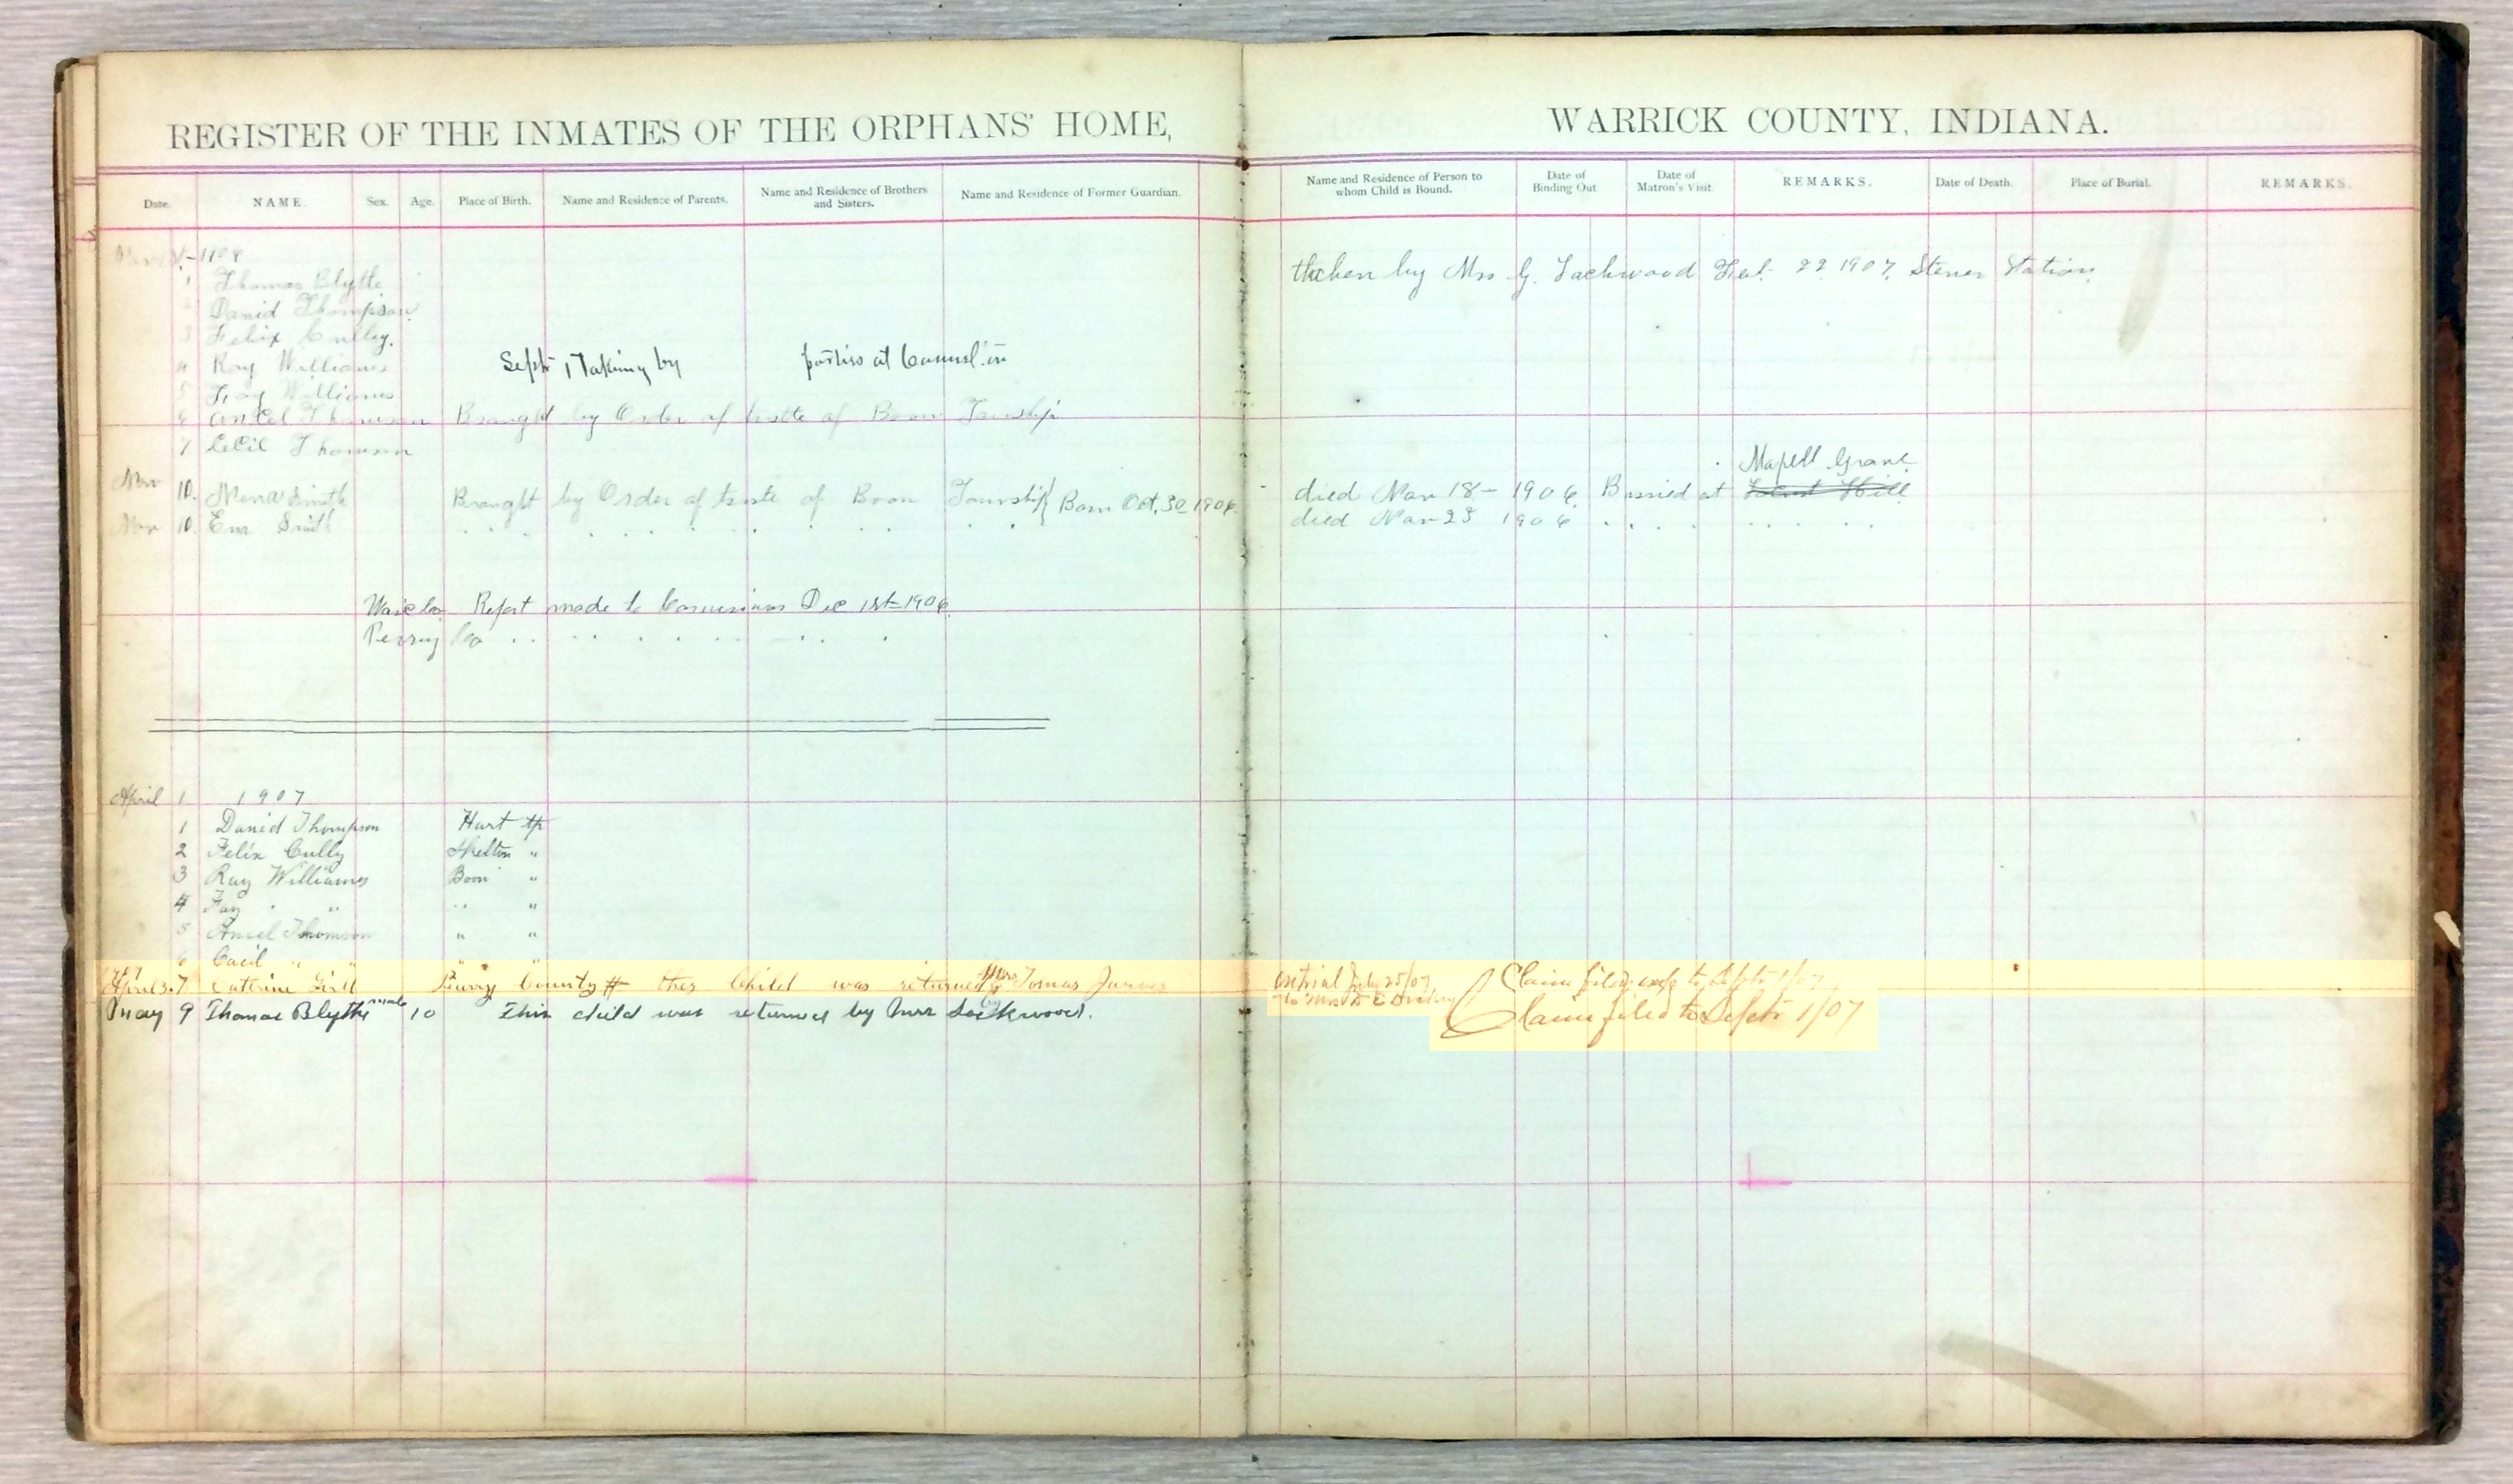 REGISTER OF THE INMATES OF THE ORPHANS' HOME,
WARRICK COUNTY, INDIANA.
Date. NAME. Sex. Age. Place of Birth. Name and Residence of Parents. Name and Residence of Brothers and Sisters. Name and Residence of Former Guardian.
Name and Residence of Person to whom Child is Bound. Date of Binding Out. Date of Matron's Visit. REMARKS. Date of Death. Place of Burial. REMARKS.
1 Thomas Blythe
by Mrs G. Lackwood Feb. 22 1907. Station
2 David Thompson
3 Felix Culley.
4 Ray Williams Sept 1 Taking by parties at
5 Fay Williams
6 Ancel Thomson Brought by Order of of Boon Township
7 Cecil Thomson
Nov 10. Smith Brought by Order of of Boon Township } Born Oct. 30 1906. died Nov 18 - 1906. Burried at
Nov 10. Smith " " " died Nov 23 1906 " " "
Report made to Dec 1st 1906.
Perry Co " " "
April 1 1907
1 David Thompson Hart tp
2 Felix Cully Skelton "
3 Ray Williams Boon "
4 Fay " " " "
5 Ancel Thomson " "
6 Cecil " " " "
April Perry County # this Child was returned by Mrs Tomas
on trial July 25/07 Claim filed to Sept 1/07
to Mrs
May 9 Thomas Blythe male 10 This child was returned by Mrs Lockwood.
Claim filed to Sept 1/07